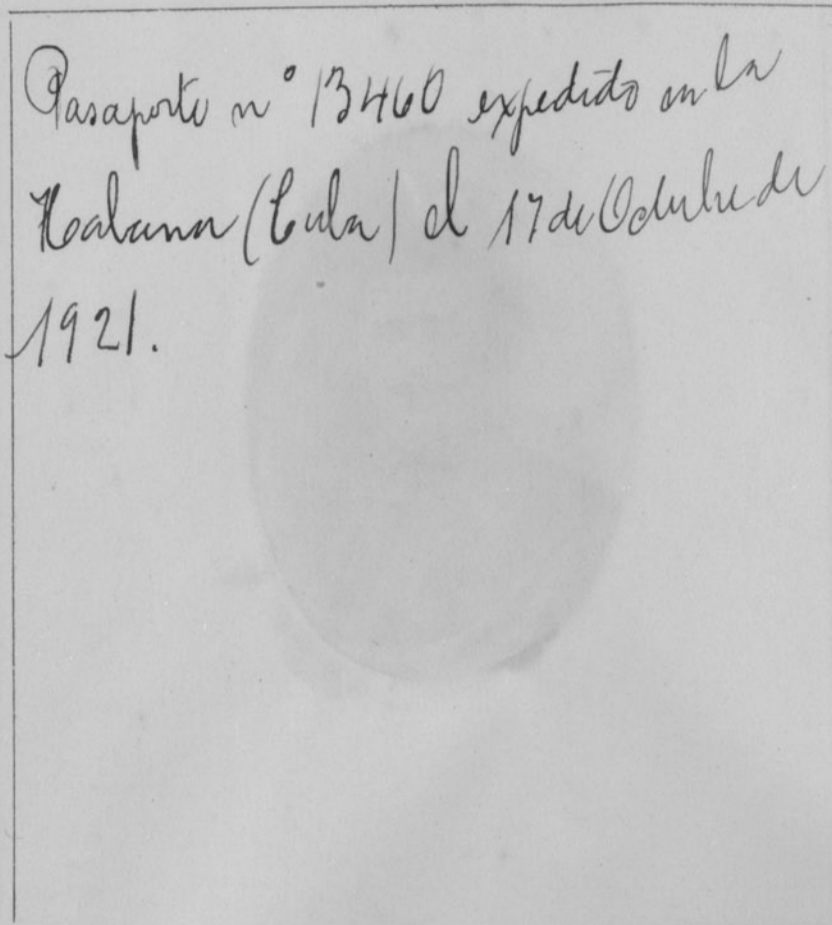 Pasaporte n° 13460 expedido en la
Habana (Cuba) el 17 de Octubre de
1921.